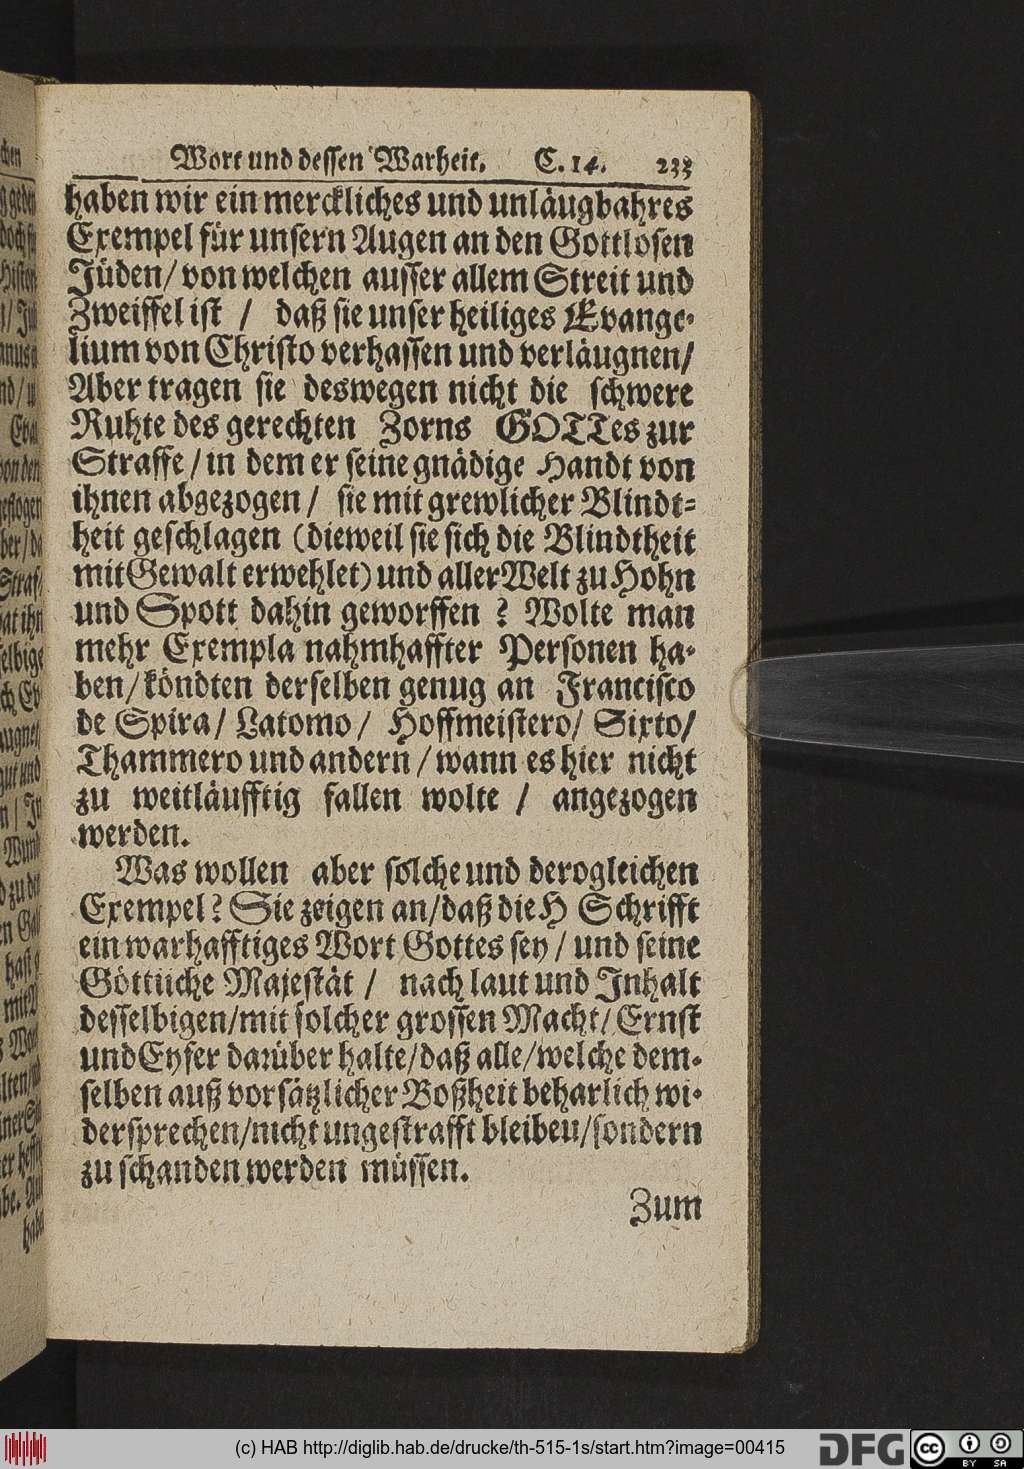 Wort und dessen Warheit. C. 14. 233
haben wir ein merckliches und unläugbahres
Exempel für unsern Augen an den Gottlosen
Jüden/ von welchen ausser allem Streit und
Zweiffel ist / daß sie unser heiliges Evange-
lium von Christo verhassen und verläugnen/
Aber tragen sie deswegen nicht die schwere
Ruhte des gerechten Zorns GOTTes zur
Straffe/ in dem er seine gnädige Handt von
ihnen abgezogen / sie mit grewlicher Blindt-
heit geschlagen (dieweil sie sich die Blindtheit
mit Gewalt erwehlet) und aller Welt zu Hohn
und Spott dahin geworffen ? Wolte man
mehr Exempla nahmhaffter Personen ha-
ben/ köndten derselben genug an Francisco
de Spira/ Latomo/ Hoffmeistero/ Sixto/
Thammero und andern / wann es hier nicht
zu weitläufftig fallen wolte / angezogen
werden.
Was wollen aber solche und derogleichen
Exempel? Sie zeigen an/ daß die H Schrifft
ein warhafftiges Wort Gottes sey / und seine
Göttliche Majestät / nach laut und Inhalt
desselbigen/mit solcher grossen Macht/ Ernst
und Eyfer darüber halte/daß alle/welche dem-
selben auß vorsätzlicher Boßheit beharlich wi-
dersprechen/nicht ungestrafft bleibeu/sondern
zu schanden werden müssen.
Zum
(c) HAB http://diglib.hab.de/drucke/th-515-1s/start.htm?image=00415
DFG
cc
BY SA